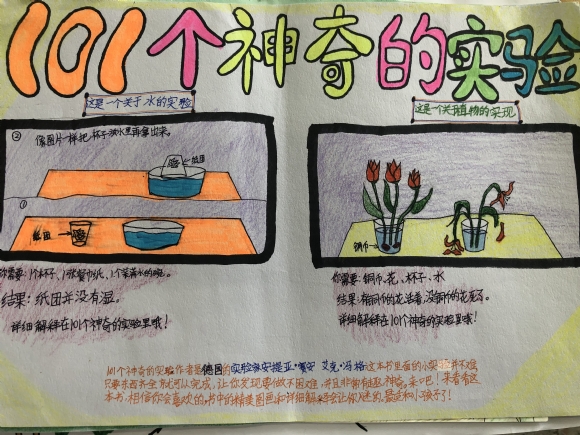 101个神奇的实验
这是一个关于水的实验
这是一个关于植物的实现
② 像图片一样把杯子放水里再拿出来。
纸团
①
纸团
铜币
你需要：1个杯子、1张餐巾纸、1个装满水的碗。
结果：纸团并没有湿。
详细解释在101个神奇的实验里哦！
你需要：铜币、花、杯子、水
结果：有铜币的花活着，没铜币的花死了。
详细解释在101个神奇的实验里哦！
101个神奇的实验作者是德国的实验家安提亚·赛安 艾克·冯格这本书里面的小实验并不难
只要东西齐全就可以完成，让你发现要做不困难，并且非常
神奇，来吧！来看看这
本书，相信你会喜欢的，书中的精美图画和详细解释会让你
迷的，最后和小孩子了！